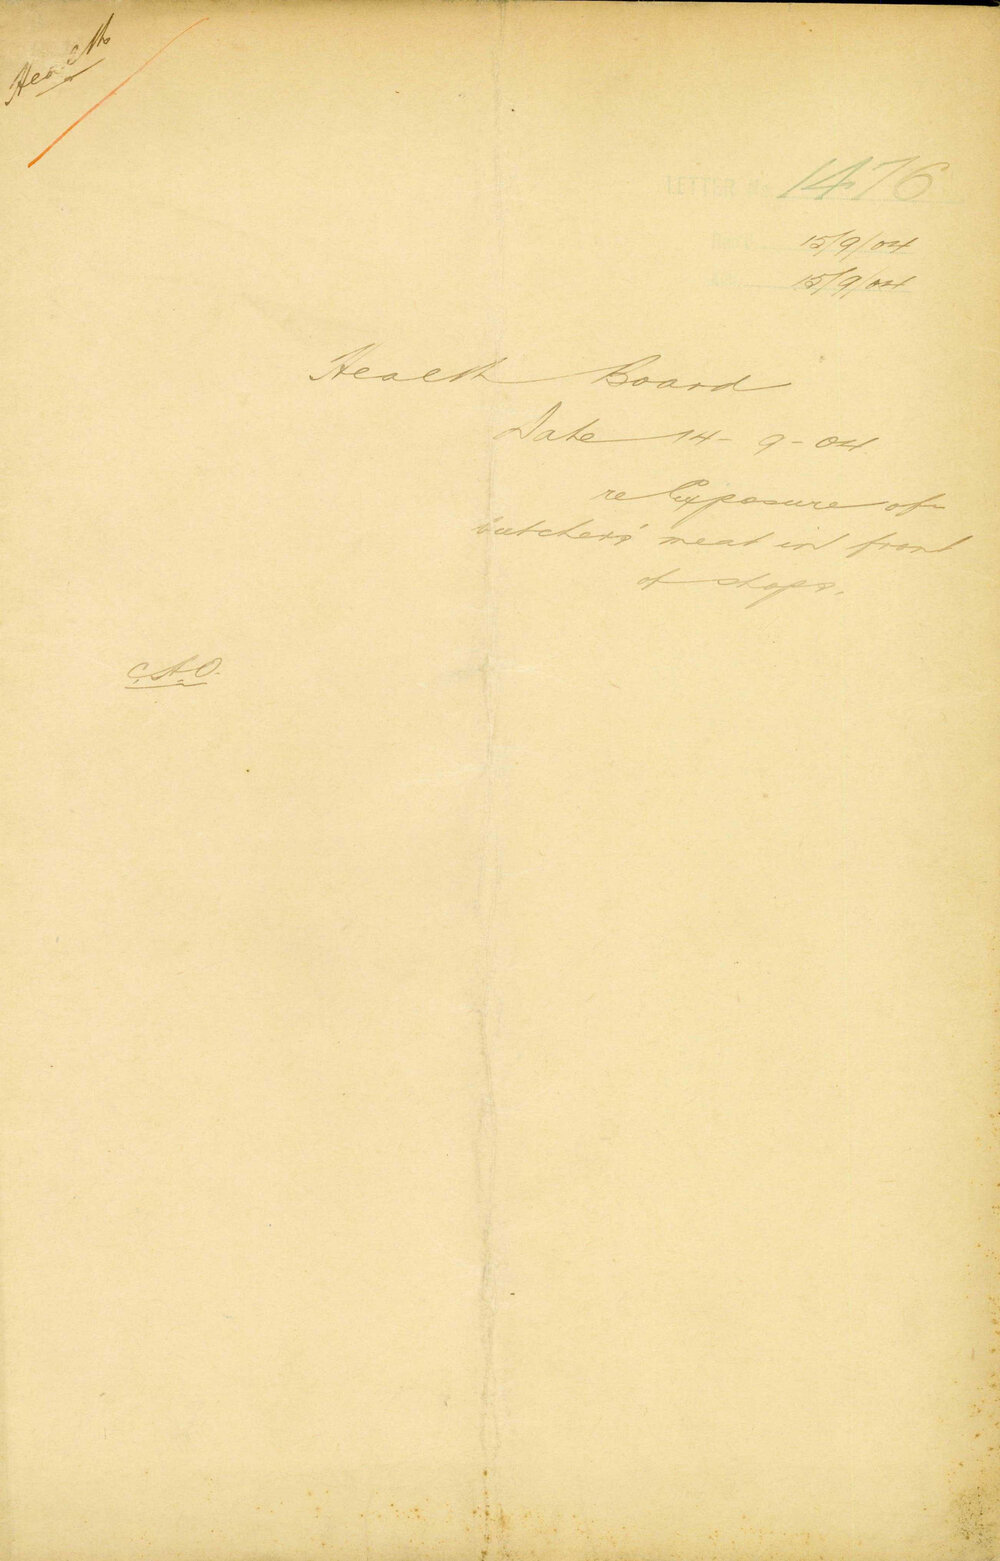 Health
LETTER No. 1476
15/9/04
15/9/04
Health Board
Date 14-9-04
re Exposure of
butchers' meat in front
of shops.